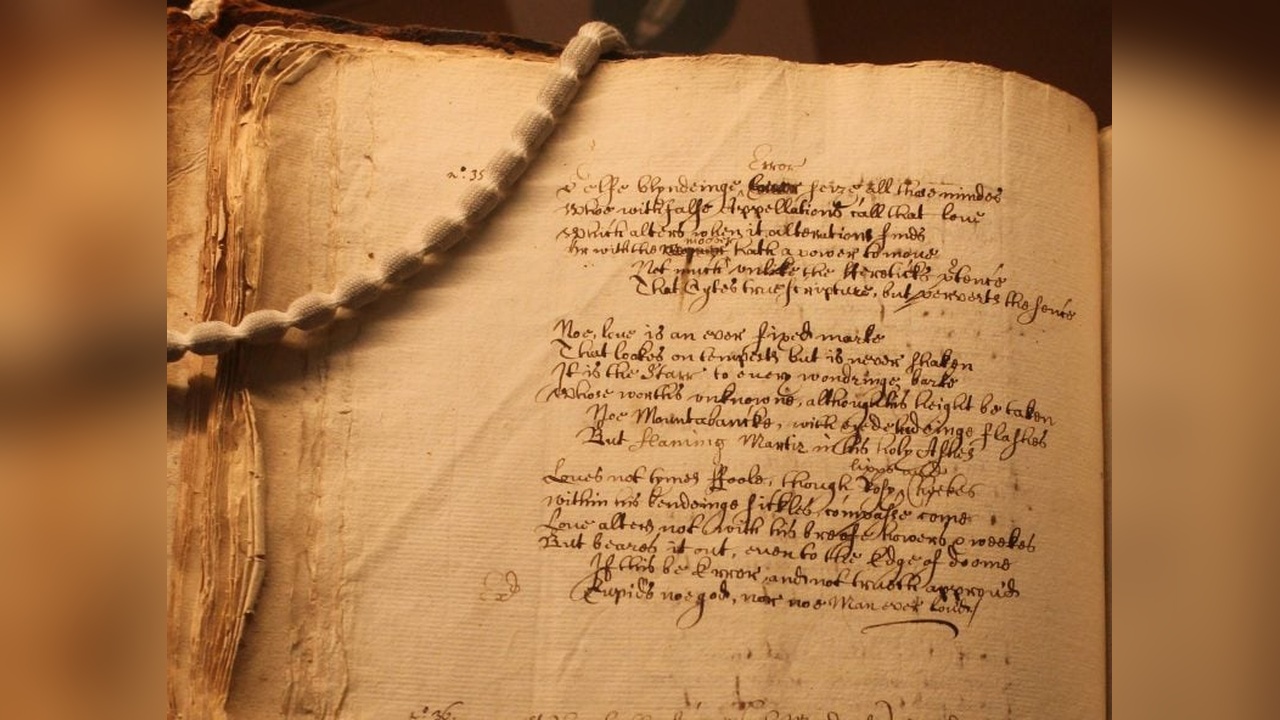 n°. 35
Error
Selfe blyndeinge seize all those mindes
Whoe with false Appellations call that love
Which alters when it alterations finds
mover
Or with the hath a power to move
Not much unlike the Hereticks p'tence
That Cytes true scripture, but perverts the sence
Noe, love is an ever fixed marke
That lookes on tempests but is never shaken
It is the Starr to every wondringe barke
Whose worths unknowne, although his height be taken
Noe Mountabancke, with eye deludeinge flashes
But flaming Martir in his holy Ashes
lipps and
Loves not tymes ffoole, though Rosy Cheekes
within his bendeinge sickles compasse come
Love alters not with his breefe howers & weekes
But beares it out, even to the Edge of doome
If this be Error and not trueth approv'd
Cupids noe god, nor noe Man ever lov'd
n°. 36.